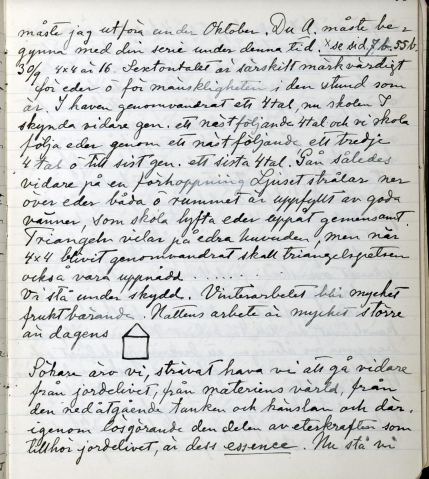 måste jag utföra under Oktober. Du A. måste be=
gynna med din serie under denna tid. x se sid. 7 b. 55 b.
30/9 4x4 är 16. Sextontalet är särskilt märkvärdigt
för eder o för mänskligheten i den stund som
är. I haven genomvandrat ett 4tal, nu skolen I
skynda vidare gen. ett nästföljande 4tal och vi skola
följa eder genom ett nästföljande ett tredje
4 tal o till sist gen. ett sista 4tal. Gån således
vidare på en förhoppning Ljuset strålar ner
över eder båda o rummet är uppfyllt av goda
vänner, som skola lyfta eder uppåt gemensamt.
Triangeln vilar på edra huvuden, men när
4x4 blivit genomvandrat skall triangelspetsen
också vara uppnådd . . . . . .
Vi stå under skydd. Vinterarbetet blir mycket
fruktbärande. Nattens arbete är mycket större
än dagens
Sökare äro vi, strävat hava vi att gå vidare
från jordelivet, från materiens värld, från
den nedåtgående tanken och känslan och där-
igenom losgörande den delen av eterkraften som
tillhör jordelivet, är dess essence. Nu stå vi